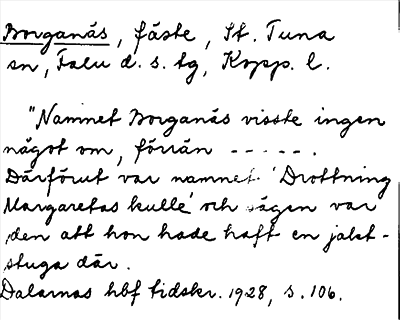 Borganäs, fäste, St. Tuna
sn, Falu d. s. tg, Kopp. l.
"Namnet Borganäs visste ingen
något om, förrän - - - - -.
Därförut var namnet 'Drottning
Margaretas kulle' och sägen var
den att hon hade haft en jakt-
stuga där.
Dalarnas hbf tidskr. 1928, s. 106.